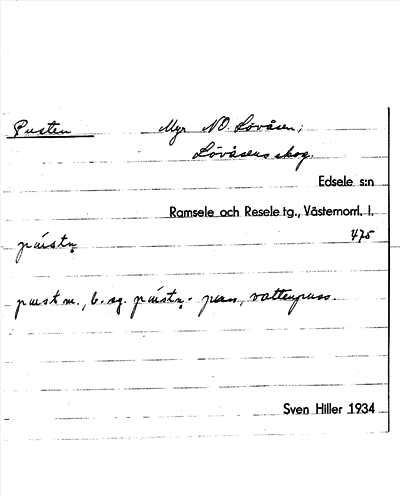 Pusten Myr NO Lövåsen;
Lövåsens skog.
Edsele s:n
Ramsele och Resele tg., Västernorrl. l.
pústn̥ 475
pust m., b. sg. pústn̥ - puss, vattenpuss.
Sven Hiller 1934